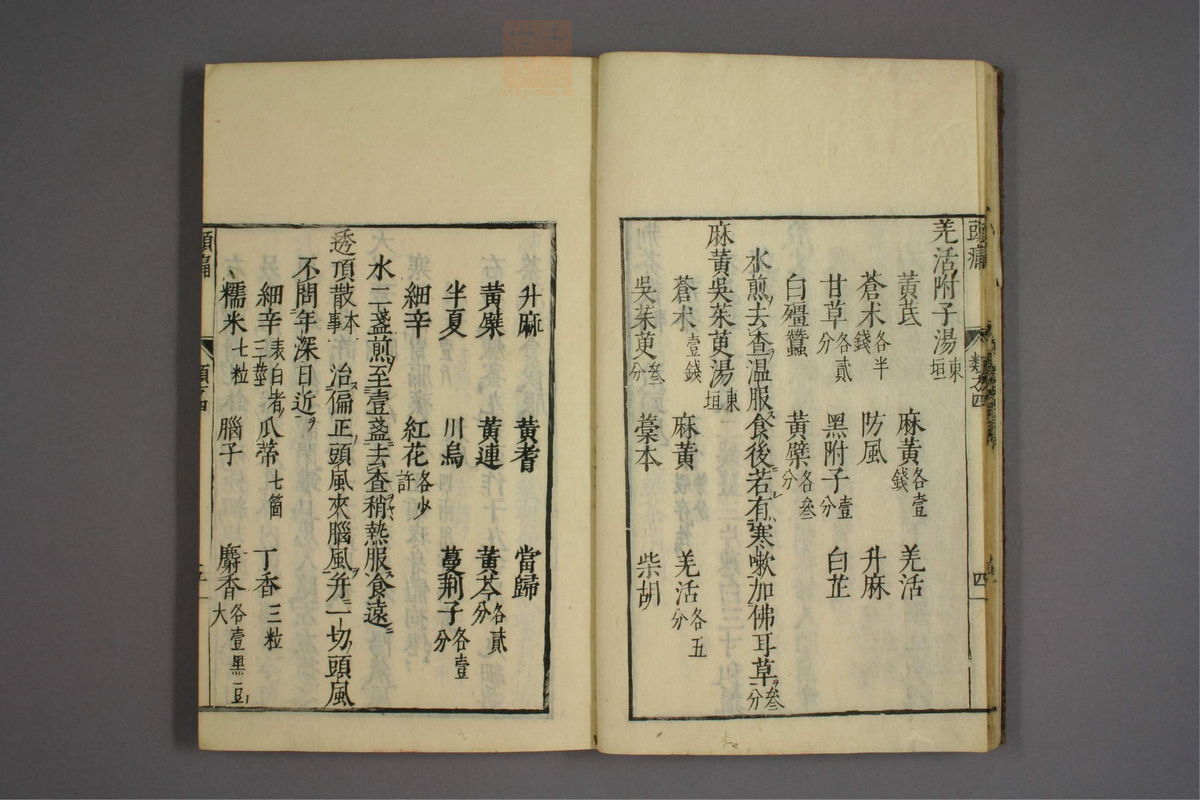 頭痛 類之四 四一
羌活附子湯東垣
黃茋 麻黃各壹錢 羌活
蒼朮各半錢 防風 升麻
甘草各貳分 黑附子壹分 白芷
白殭蠶 黃檗各叄分
水煎去查溫服食後若有寒嗽加佛耳草叄分
麻黃吳茱萸湯東垣
蒼朮壹錢 麻黃 羌活各五分
吳茱萸叄分 藁本 柴胡
升麻 黃耆 當歸
黃檗 黃連 黃芩各貳分
半夏 川烏 蔓荊子各壹分
細辛 紅花各少許
水二盞煎至壹盞去查稍熱服食遠
透頂散本事 治偏正頭風夾腦風并一切頭風
不問年深日近
細辛表白者三莖 瓜蒂七箇 丁香三粒
糯米七粒 腦子 麝香各壹黑豆大